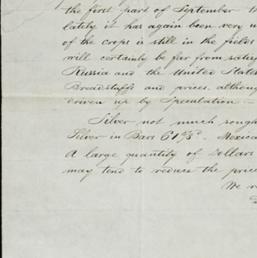 the first part of September
lately it has again been very
of the crops is still in the fields
will certainly be far from
Russia and the United States
Breadstuffs and prices, although
driven up by Speculation —
Silver not much
Silver in Bars
A large quantity of Dollars
may tend to reduce the price
We